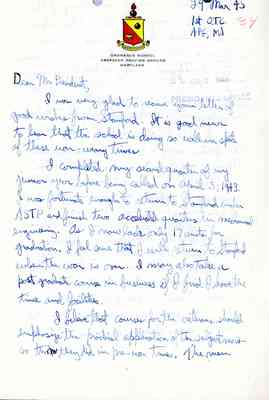 29 Mar 45
1st OTC
APG, Md
ORDNANCE SCHOOL
ABERDEEN PROVING GROUND
MARYLAND
Dear Mr
I was very glad to receive your letter of
good wishes from Stanford. It is good news
to hear that the school is doing so well in spite
of these war-weary times.
I completed my second quarter of my
junior year before being called on April 3, 1943.
I was fortunate enough to return to Stanford under
ASTP and finish two accelerated quarters in mechanical
engineering. As I now lack only 17 units for
graduation, I feel sure that I will return to Stanford
when the war is won. I may also take a
post graduate course in business if I find I have the
time and facilities.
I believe that courses for the veterans should
emphasize the practical application of the subject more
so than they did in pre-war times. The men